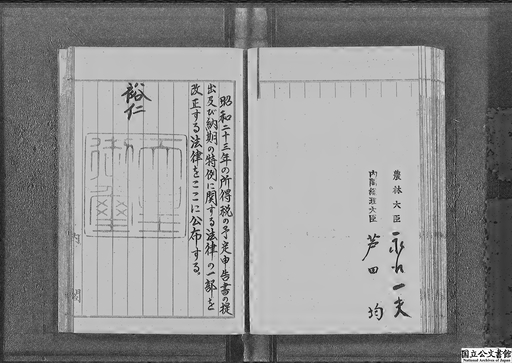 農林大臣
永江一夫
内閣総理大臣
芦田均
昭和二十三年の所得税の予定申告書の提
出及び納期の特例に関する法律の一部を
改正する法律をここに公布する。
裕仁
内閣
国立公文書館
National Archives of Japan